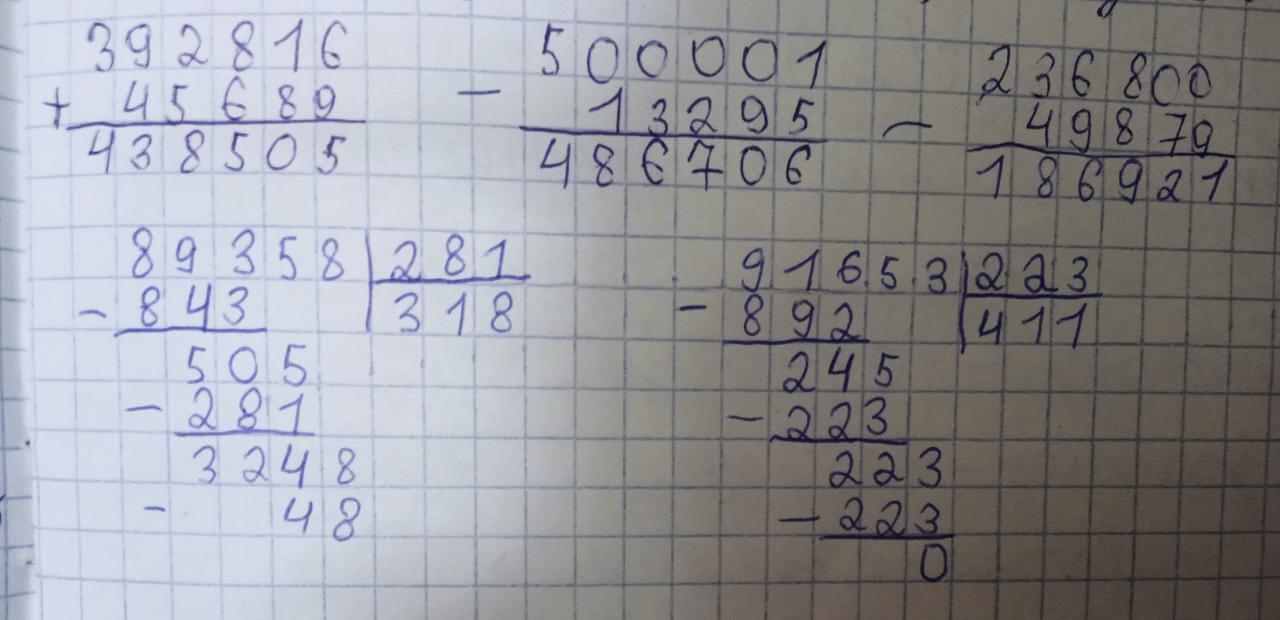 392816
+ 45689
438505
500001
- 13295
486706
236800
- 49879
186921
89358 | 281
- 843 | 318
505
- 281
3248
- 48
91653 | 223
- 892 | 411
245
- 223
223
- 223
0